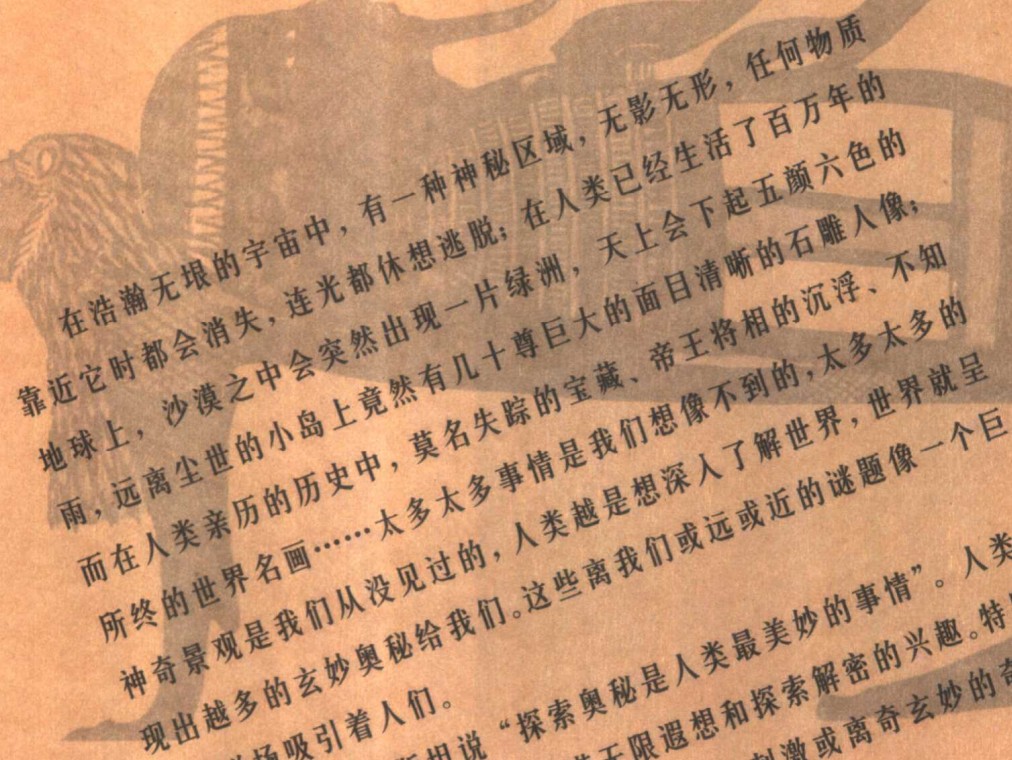 在浩瀚无垠的宇宙中，有一种神秘区域，无影无形，任何物质
靠近它时都会消失，连光都休想逃脱；在人类已经生活了百万年的
地球上，沙漠之中会突然出现一片绿洲，天上会下起五颜六色的
雨，远离尘世的小岛上竟然有几十尊巨大的面目清晰的石雕人像；
而在人类亲历的历史中，莫名失踪的宝藏、帝王将相的沉浮、不知
所终的世界名画……太多太多事情是我们想像不到的，太多太多的
神奇景观是我们从没见过的，人类越是想深入了解世界，世界就呈
现出越多的玄妙奥秘给我们。这些离我们或远或近的谜题像一个巨
场吸引着人们。
坦说“探索奥秘是人类最美妙的事情”。人类
无限遐想和探索解密的兴趣。特
刺激或离奇玄妙的奇